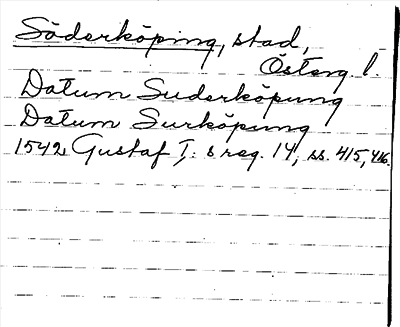 Söderköping, stad,
Österg l.
Datum Suderköpung
Datum Surköpung
1542 Gustaf I: s reg. 14, ss. 415, 416.